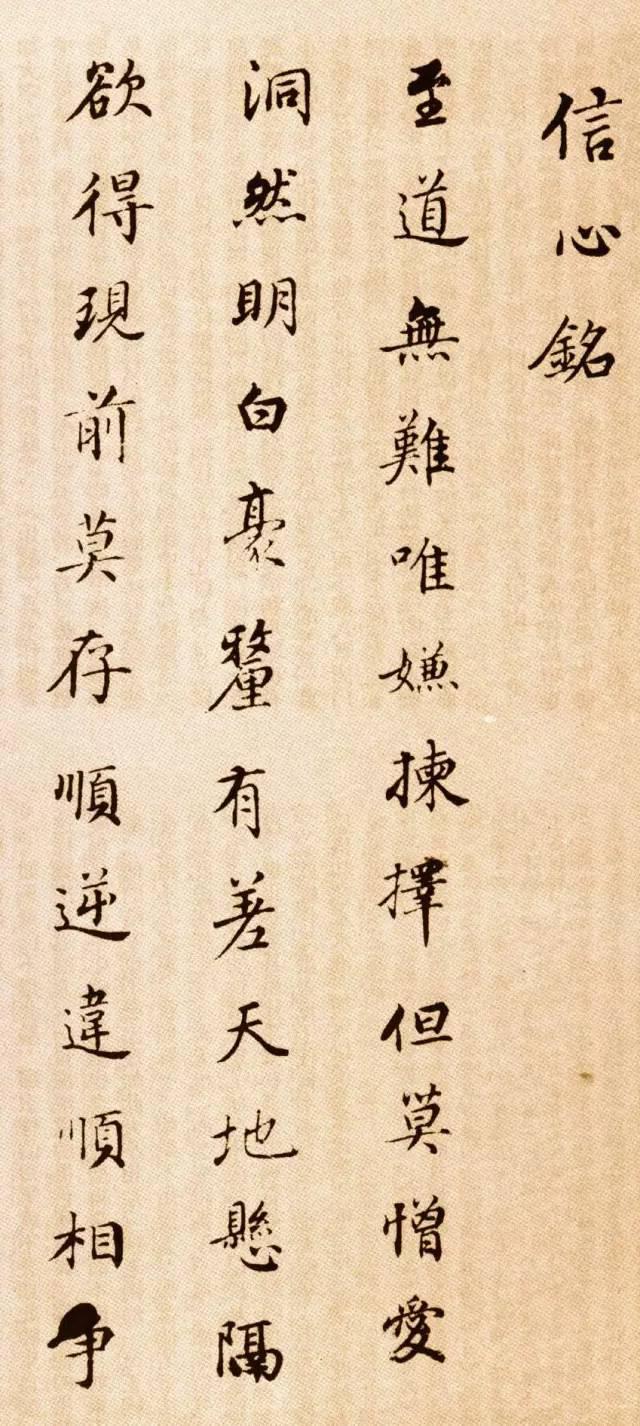 信心銘
至道無難唯嫌揀擇但莫憎愛
洞然明白豪釐有差天地懸隔
欲得現前莫存順逆違順相爭